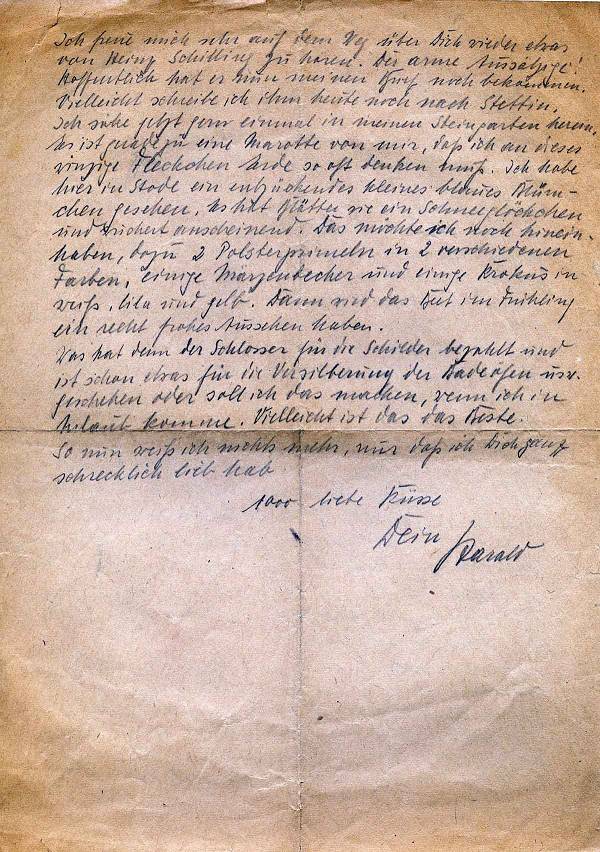 Ich freue mich sehr auf dem Weg über Dich wieder etwas
von Heinz Schilling zu hören. Der arme Aussätzige!
Hoffentlich hat er nun meinen Brief noch bekommen.
Vielleicht schreibe ich ihm heute noch nach Stettin.
Ich sähe jetzt gern einmal in meinen Steingarten herein.
Es ist geradezu eine Marotte von mir, daß ich an dieses
winzige Fleckchen Erde so oft denken muß. Ich habe
hier in Stade ein entzückendes kleines blaues Blüm-
chen gesehen. Es hat Blätter wie ein Schneeglöckchen
und wuchert anscheinend. Das möchte ich noch hinein-
haben, dazu 2 Polsterprimeln in 2 verschiedenen
Farben, einige Märzenbecher und einige Krokus in
weiß, lila und gelb. Dann wird das Beet im Frühling
ein recht frohes Aussehen haben.
Was hat denn der Schlosser für die Schilder bezahlt und
ist schon etwas für die Versilberung der Badeöfen usw.
geschehen oder soll ich das machen, wenn ich in
Urlaub komme. Vielleicht ist das das Beste.
So nun weiß ich nichts mehr, nur daß ich Dich ganz
schrecklich lieb hab
1000 liebe Küsse
Dein
Harald